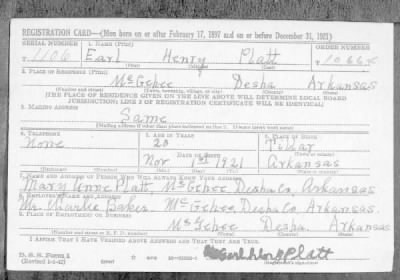 REGISTRATION CARD—(Men born on or after February 17, 1897 and on or before December 31, 1921)
SERIAL NUMBER 1. NAME (Print) ORDER NUMBER
1106 Earl Henry Platt
(First) (Middle) (Last)
2. PLACE OF RESIDENCE (Print)
McGehee Desha Arkansas
(Number and street) (Town, township, village, or city) (County) (State)
[THE PLACE OF RESIDENCE GIVEN ON THE LINE ABOVE WILL DETERMINE LOCAL BOARD
JURISDICTION; LINE 2 OF REGISTRATION CERTIFICATE WILL BE IDENTICAL]
3. MAILING ADDRESS
Same
[Mailing address if other than place indicated on line 2. If same insert word same]
4. TELEPHONE 5. AGE IN YEARS 6. PLACE OF BIRTH
None 20 Tillar
DATE OF BIRTH (Town or county)
Nov 1st 1921 Arkansas
(Exchange) (Number) (Mo.) (Day) (Yr.) (State or country)
7. NAME AND ADDRESS OF PERSON WHO WILL ALWAYS KNOW YOUR ADDRESS
Mary Anne Platt, McGehee, Desha Co, Arkansas.
8. EMPLOYER'S NAME AND ADDRESS
Mr. Charlie Baker McGehee, Desha Co. Arkansas.
9. PLACE OF EMPLOYMENT OR BUSINESS
McGehee Desha Arkansas
(Number and street or R. F. D. number) (Town) (County) (State)
I AFFIRM THAT I HAVE VERIFIED ABOVE ANSWERS AND THAT THEY ARE TRUE.
D. S. S. Form 1
Earl Henry Platt